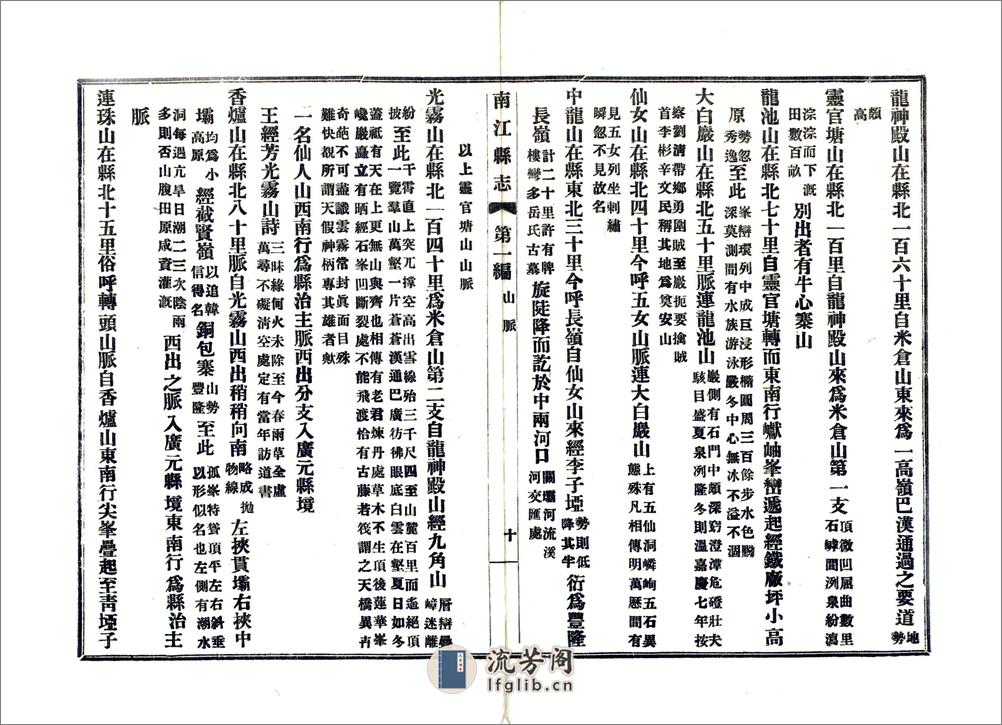 龍神殿山在縣北一百六十里自米倉山東來爲一高嶺巴漢通過之要道地勢
頗高
靈官塘山在縣北一百里自龍神殿山來爲米倉山第一支頂微凹屈曲數里石罅間洌泉紛瀉
淙淙而下漑田數百畝別出者有牛心寨山
龍池山在縣北七十里自靈官塘轉而東南行巘岫峯巒遞起經鐵廠坪小高
原勢忽昂秀逸至此峯巒環列中成巨浸形橢圓周三百餘步水色黝深莫測間有水族游泳嚴冬中心無冰不溢不涸
大白巖山在縣北五十里脈連龍池山巖側有石門中頗深窈澄潭危磴壯夫駭目盛夏泉冽隆冬則溫嘉慶七年按
察劉淸帶鄉勇圍賊至巖扼要擒賊首李彬辛文民稱其地爲奠安山
仙女山在縣北四十里今呼五女山脈連大白巖山上有五仙洞嶙峋五石異態殊凡相傳明萬歷間有
見五女列坐刺繡瞬忽不見故名
中龍山在縣東北三十里今呼長嶺自仙女山來經李子埡勢則低降其半衍爲豐隆
長嶺計二十里許有牌樓灣多岳氏古墓旋陡降而訖於中兩河口關壩河流溪河交匯處
以上靈官塘山山脈
南江縣志 第一編 山脈 十
光霧山在縣北一百四十里爲米倉山第二支自龍神殿山經九角山層巒疊嶂迷離
紛披至此一覽羣山萬壑一片蒼蒼漢通巴廣彷彿眼底白雲在壑夏日如冬
干霄直上突兀撐空高出雪線殆三千尺四至山麓百里而遙絕頂
蓋祇有天在上更無山與齊也相傳有老君煉丹處草木不生頂後蓮華峯
巉巖矗立有曬經石峯凹斷裂處不能飛渡恰有古藤若筏謂之天橋異卉
奇葩不可盡識雲霧常封眞面目殊難快覩所謂天假神柄專其雄者歟
一名仙人山西南行爲縣治主脈西出分支入廣元縣境
王經芳光霧山詩三昧緣何火未除至今春雨草全盧萬尋不礙淸空處定有當年訪道書
香爐山在縣北八十里脈自光霧山西出稍稍向南略成拋物線左挾貫壩右挾中
壩均爲小高原經截賢嶺以追韓信得名銅包寨山勢豐隆至此孤峯特聳頂平左右斜垂以形似名也左側有潮水
洞每遇亢旱日潮二三次陰雨多則否山腹田原咸資灌漑西出之脈入廣元縣境東南行爲縣治主
脈
連珠山在縣北十五里俗呼轉頭山脈自香爐山東南行尖峯疊起至靑埡子
流芳阁
lfglib.cn